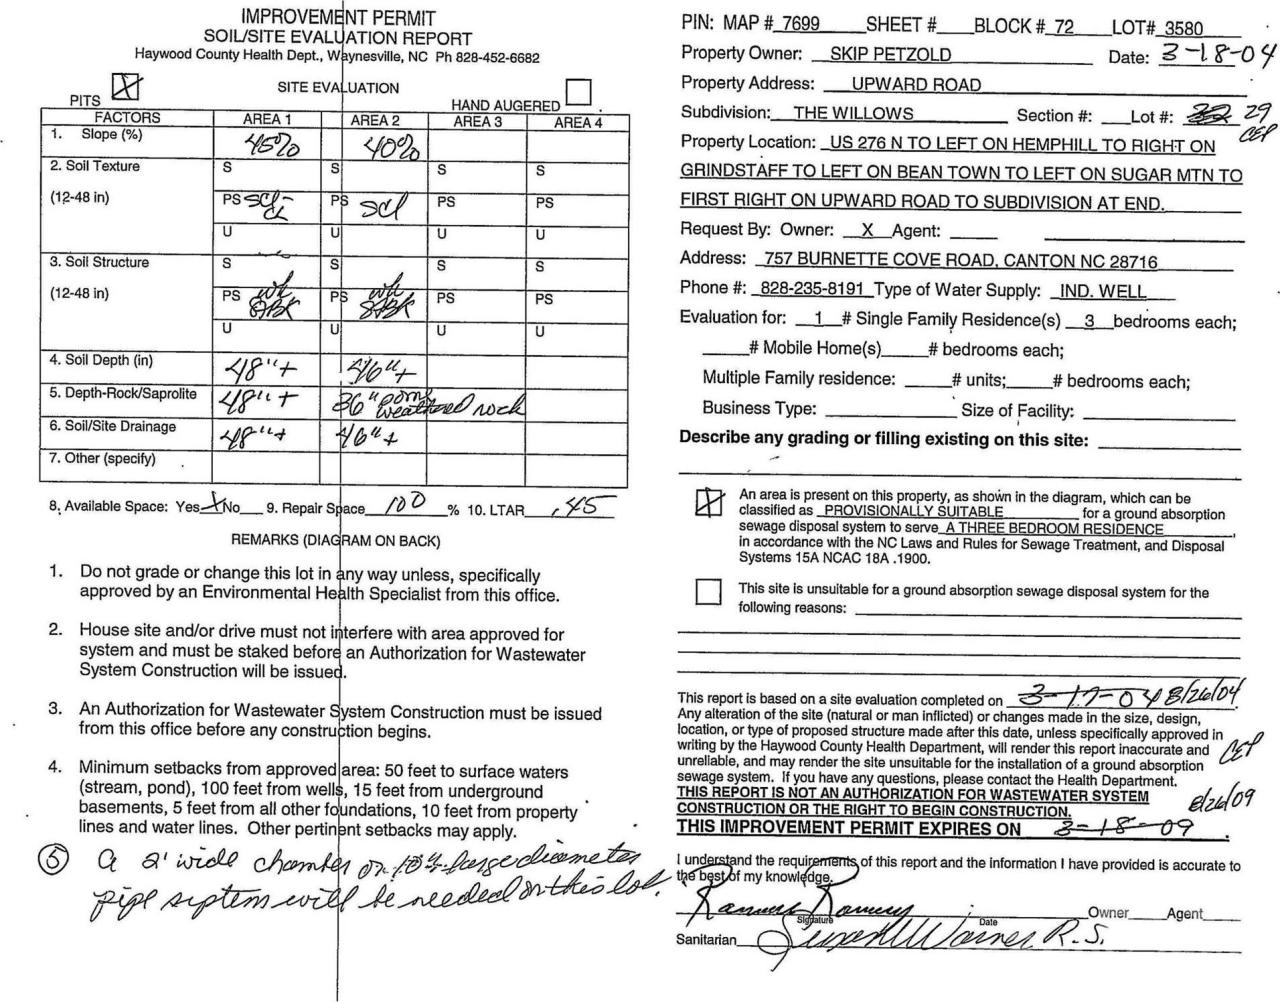 IMPROVEMENT PERMIT
SOIL/SITE EVALUATION REPORT
Haywood County Health Dept., Waynesville, NC Ph 828-452-6682
PITS X SITE EVALUATION HAND AUGERED
FACTORS AREA 1 AREA 2 AREA 3 AREA 4
1. Slope (%) 45% 40%
2. Soil Texture S S S S
(12-48 in) PS scl-cl PS scl PS PS
U U U U
3. Soil Structure S S S S
(12-48 in) PS wk SBK PS wk SBK PS PS
U U U U
4. Soil Depth (in) 48"+ 46"+
5. Depth-Rock/Saprolite 48"+ 36" some weathered rock
6. Soil/Site Drainage 48"+ 46"+
7. Other (specify)
8. Available Space: Yes X No 9. Repair Space 100 % 10. LTAR .45
REMARKS (DIAGRAM ON BACK)
1. Do not grade or change this lot in any way unless, specifically
approved by an Environmental Health Specialist from this office.
2. House site and/or drive must not interfere with area approved for
system and must be staked before an Authorization for Wastewater
System Construction will be issued.
3. An Authorization for Wastewater System Construction must be issued
from this office before any construction begins.
4. Minimum setbacks from approved area: 50 feet to surface waters
(stream, pond), 100 feet from wells, 15 feet from underground
basements, 5 feet from all other foundations, 10 feet from property
lines and water lines. Other pertinent setbacks may apply.
5 A 2' wide chamber or large diameter
pipe system will be needed on this lot.
PIN: MAP # 7699 SHEET # BLOCK # 72 LOT# 3580
Property Owner: SKIP PETZOLD Date: 3-18-04
Property Address: UPWARD ROAD
Subdivision: THE WILLOWS Section #: Lot #: 29
CEP
Property Location: US 276 N TO LEFT ON HEMPHILL TO RIGHT ON
GRINDSTAFF TO LEFT ON BEAN TOWN TO LEFT ON SUGAR MTN TO
FIRST RIGHT ON UPWARD ROAD TO SUBDIVISION AT END.
Request By: Owner: X Agent:
Address: 757 BURNETTE COVE ROAD, CANTON NC 28716
Phone #: 828-235-8191 Type of Water Supply: IND. WELL
Evaluation for: 1 # Single Family Residence(s) 3 bedrooms each;
# Mobile Home(s) # bedrooms each;
Multiple Family residence: # units; # bedrooms each;
Business Type: Size of Facility:
Describe any grading or filling existing on this site:
X An area is present on this property, as shown in the diagram, which can be
classified as PROVISIONALLY SUITABLE for a ground absorption
sewage disposal system to serve A THREE BEDROOM RESIDENCE,
in accordance with the NC Laws and Rules for Sewage Treatment, and Disposal
Systems 15A NCAC 18A .1900.
This site is unsuitable for a ground absorption sewage disposal system for the
following reasons:
This report is based on a site evaluation completed on 3-17-04 8/26/04.
Any alteration of the site (natural or man inflicted) or changes made in the size, design,
location, or type of proposed structure made after this date, unless specifically approved in
writing by the Haywood County Health Department, will render this report inaccurate and
unreliable, and may render the site unsuitable for the installation of a ground absorption
sewage system. If you have any questions, please contact the Health Department.
CEP
THIS REPORT IS NOT AN AUTHORIZATION FOR WASTEWATER SYSTEM
CONSTRUCTION OR THE RIGHT TO BEGIN CONSTRUCTION.
8/26/09
THIS IMPROVEMENT PERMIT EXPIRES ON 3-18-09.
I understand the requirements of this report and the information I have provided is accurate to
the best of my knowledge.
Signature Date Owner Agent
Sanitarian Warner R.S.